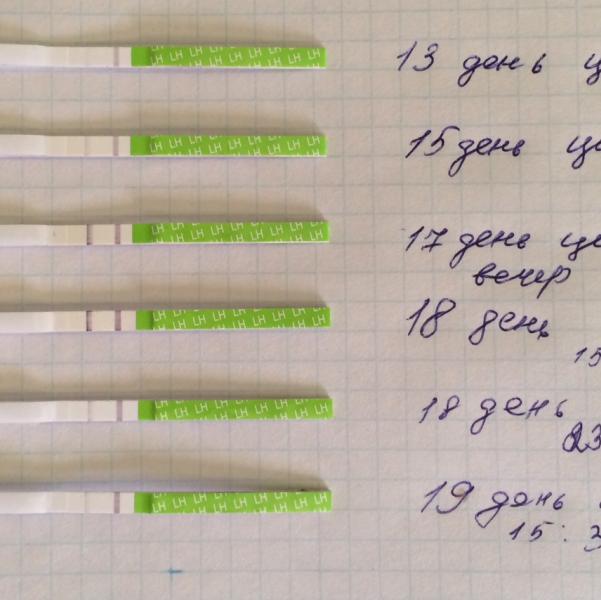 LH LH LH LH LH LH LH
13 день ц
LH LH LH LH LH LH LH
15 день ц
LH LH LH LH LH LH LH
17 день ц
вечер
LH LH LH LH LH LH LH
18 день
15
LH LH LH LH LH LH LH
18 день
23
LH LH LH LH LH LH LH
19 день
15:3